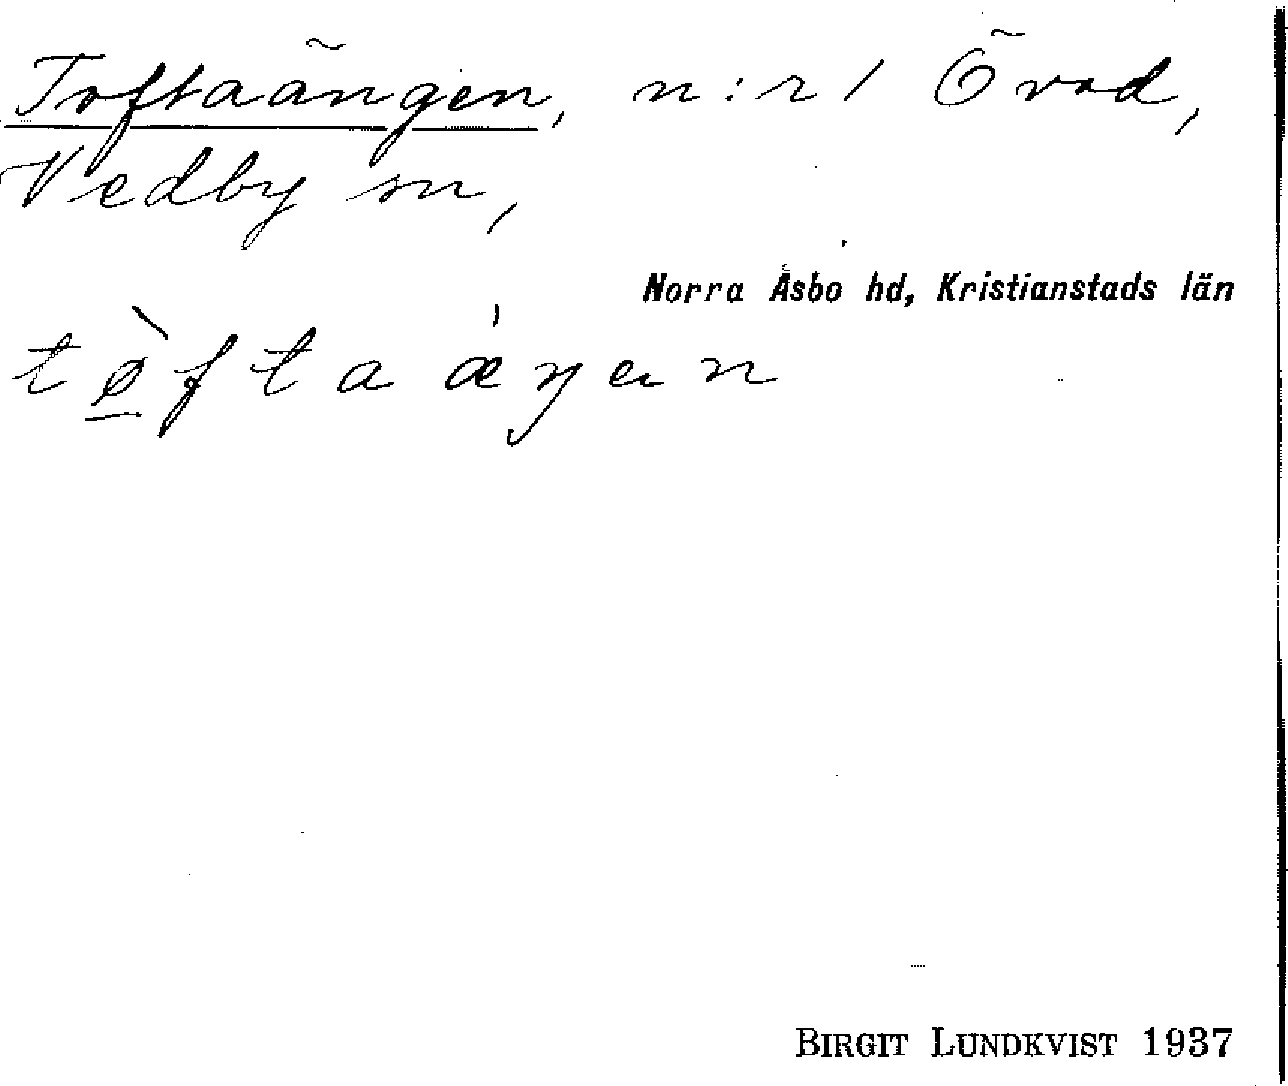 Toftaängen, n:r 1 Örod,
Vedby sn,
Norra Åsbo hd, Kristianstads län
tø̀ftaǽŋən
BIRGIT LUNDKVIST 1937